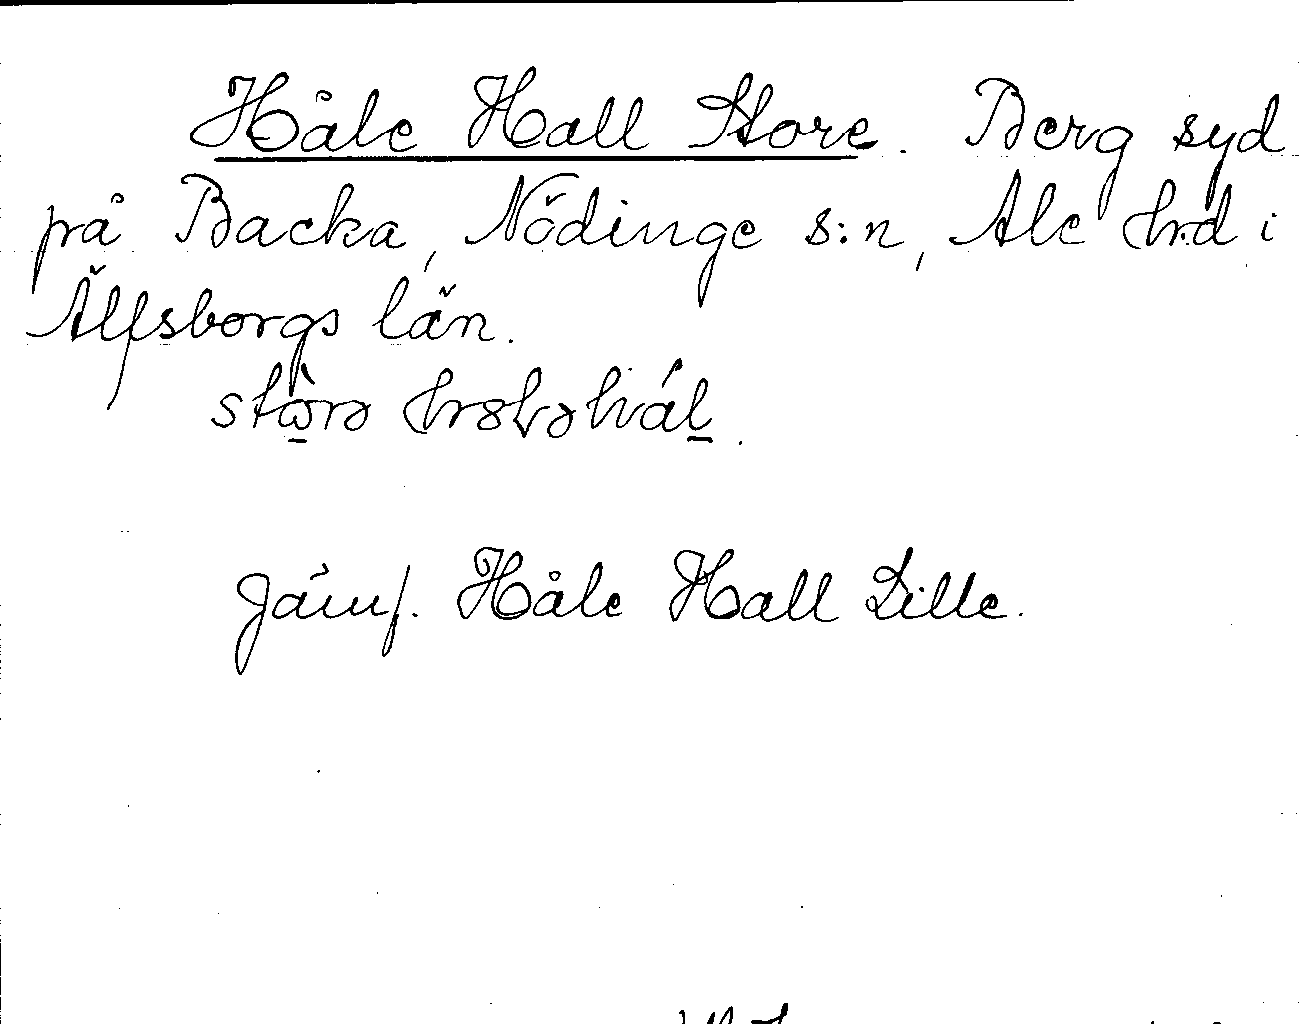 Håle Hall Store. Berg syd
på Backa, Nödinge s:n, Ale hrd i
Älfsborgs län.
Jämf. Håle Hall Lille.